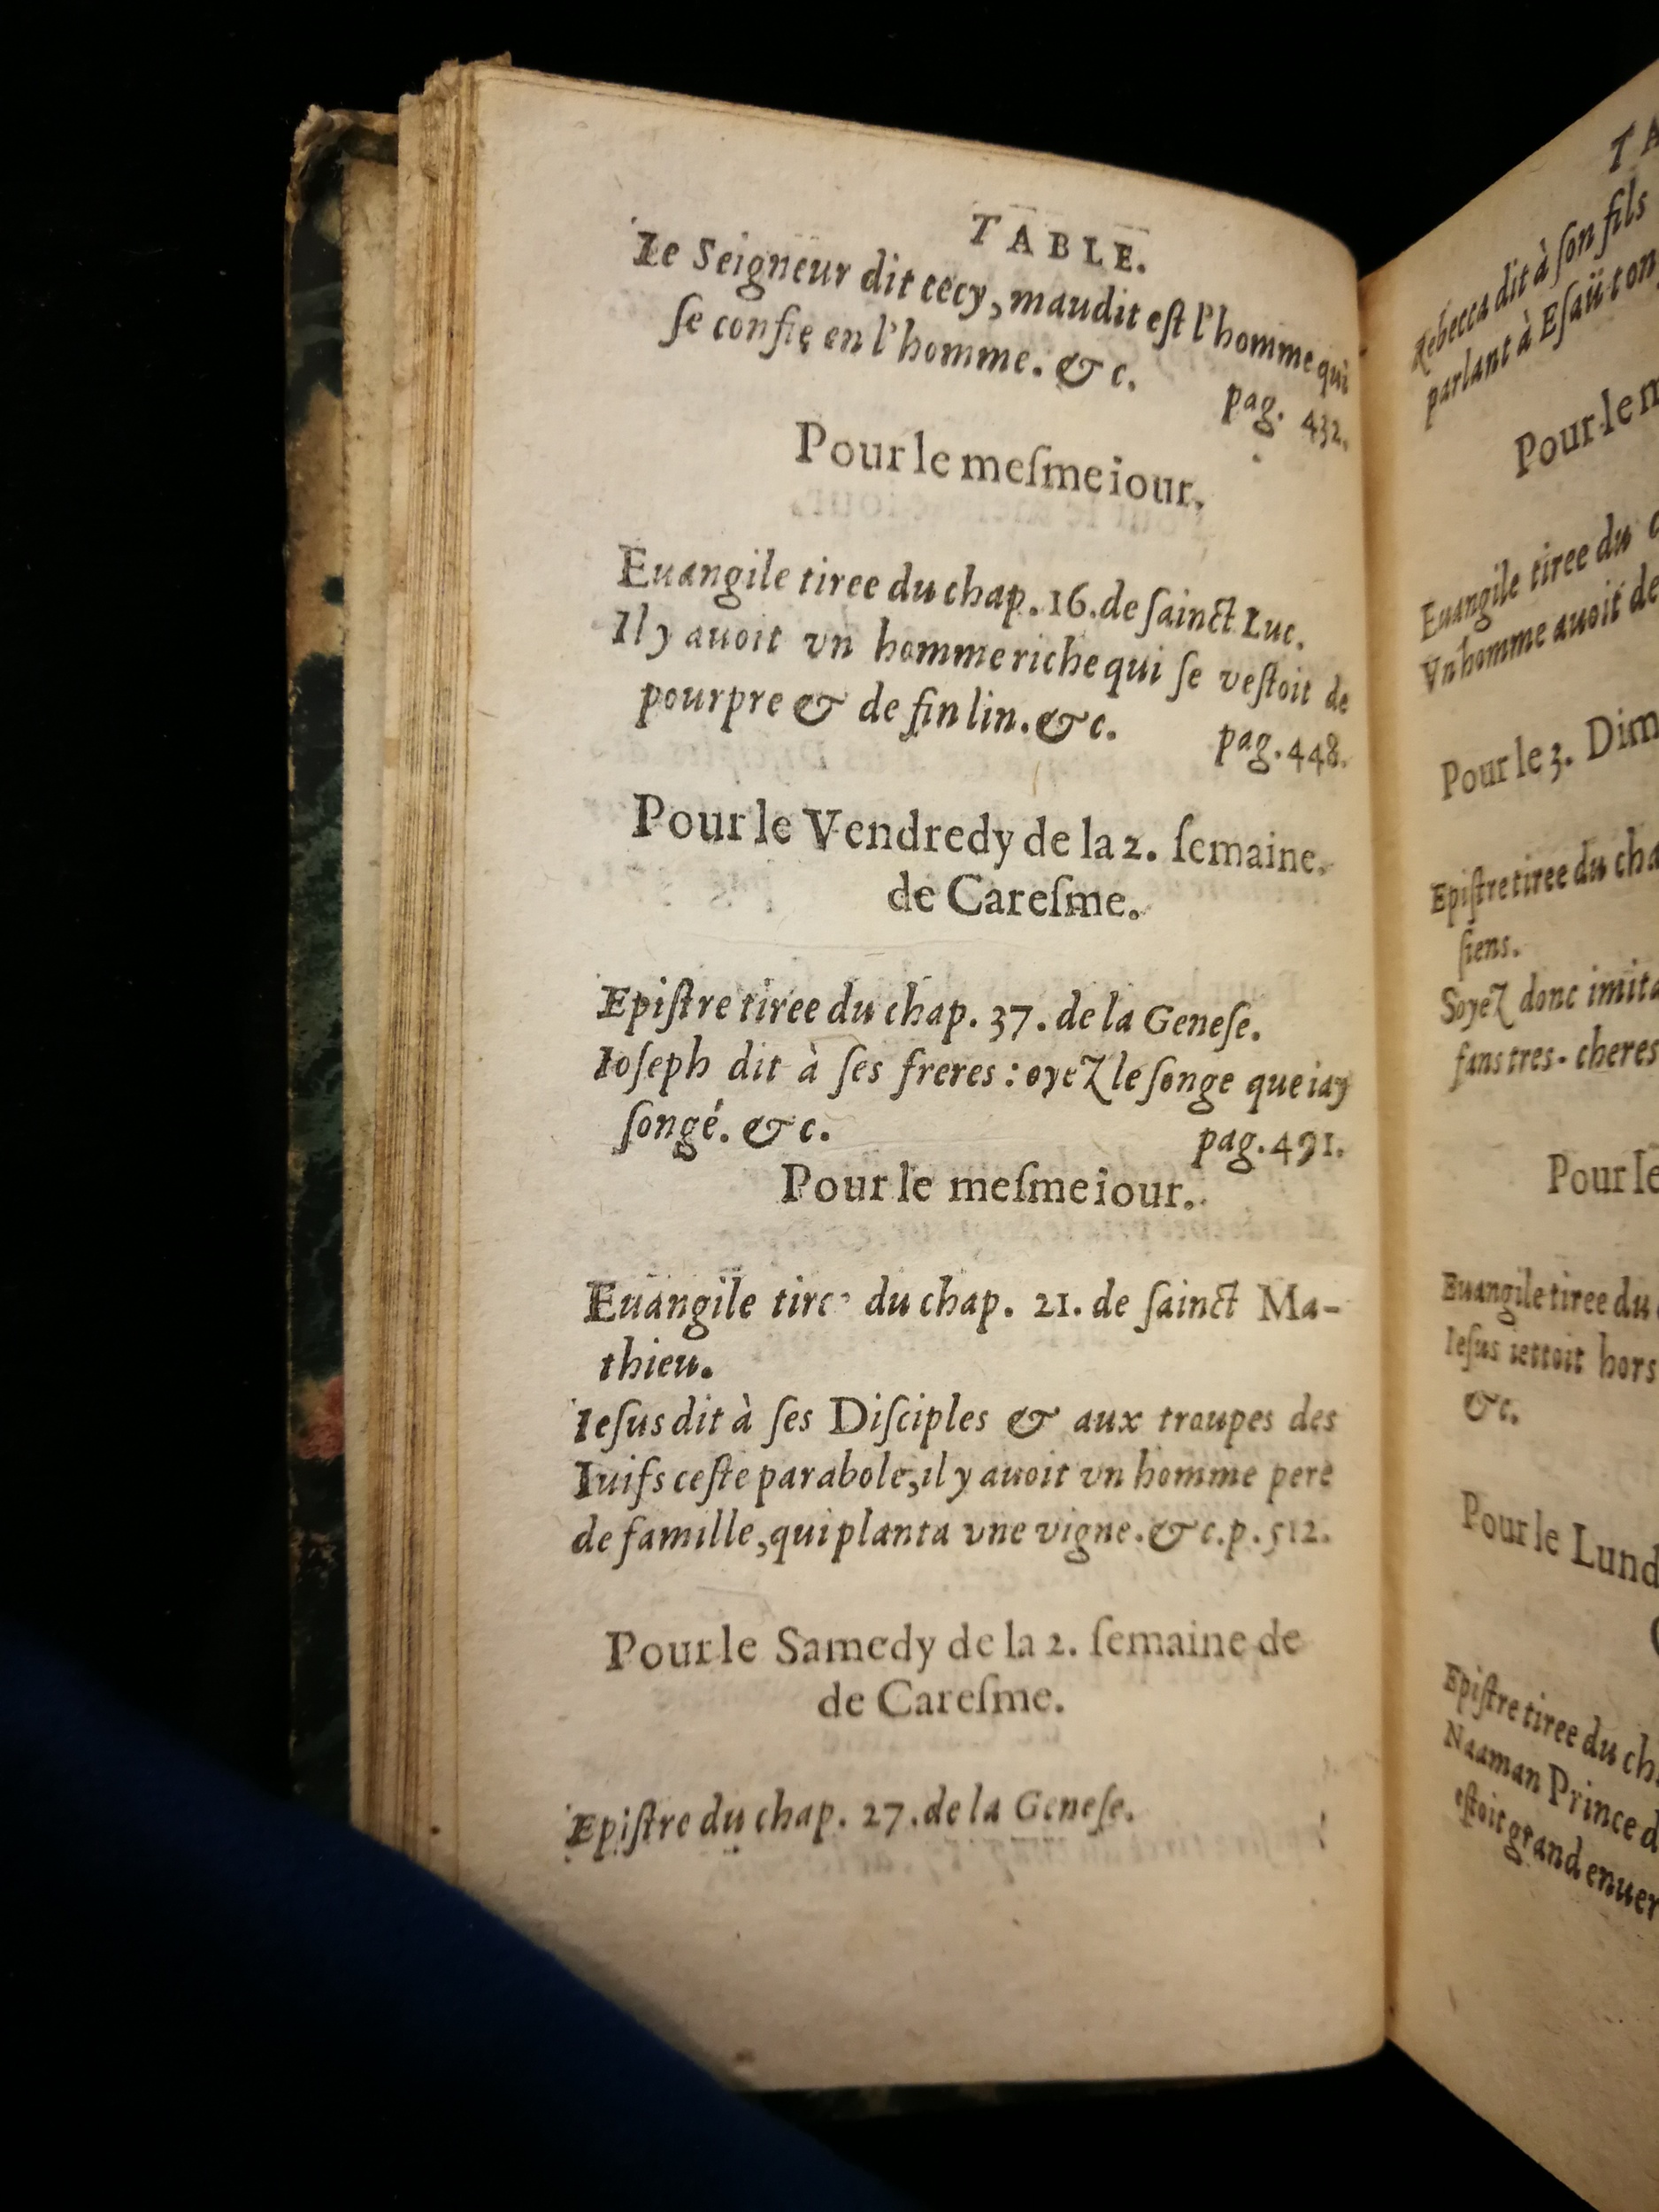 TABLE.
Le Seigneur dit cecy, maudit eſt l'homme qui
ſe confie en l'homme. &c.
pag. 432.
Pour le meſme iour.
Euangile tiree du chap. 16. de ſainct Luc.
Il y auoit vn homme riche qui ſe veſtoit de
pourpre & de fin lin. &c.
pag. 448.
Pour le Vendredy de la 2. ſemaine.
de Careſme.
Epiſtre tiree du chap. 37. de la Geneſe.
Ioſeph dit à ſes freres : oyez le ſonge que iay
ſongé. &c.
pag. 491.
Pour le meſme iour.
Euangile du chap. 21. de ſainct Ma-
thieu.
Ieſus dit à ſes Diſciples & aux troupes des
Iuifs ceſte parabole, il y auoit vn homme pere
de famille, qui planta vne vigne. &c. p. 512.
Pour le Samedy de la 2. ſemaine de
de Careſme.
Epiſtre du chap. 27. de la Geneſe.
TA
Rebecca dit à ſon fils
parlant à Eſaü ton
Pour le m
Euangile tiree du
Vn homme auoit de
Pour le 3. Dim
Epiſtre tiree du cha
ſiens.
Soyez donc imita
fans tres-cheres
Pour le
Euangile tiree du
Ieſus iettoit hors
&c.
Pour le Lund
Epiſtre tiree du ch
Naaman Prince d
eſtoit grand enuer